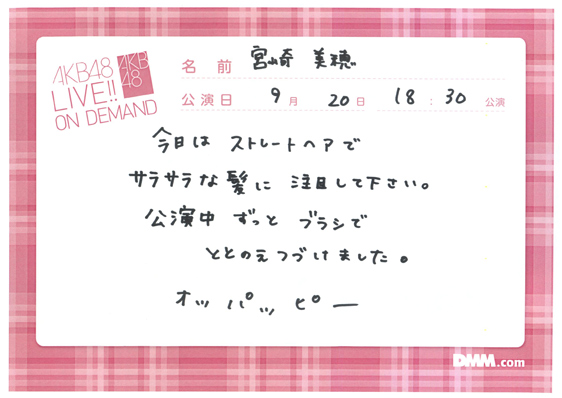 AKB48
LIVE!!
ON DEMAND
AKB
48
名前 宮崎 美穂
公演日 9月 20日 18:30 公演
今日は ストレートヘアで
サラサラな髪に 注目して下さい。
公演中 ずっと ブラシで
ととのえつづけました。
オッ パッ ピー
DMM.com